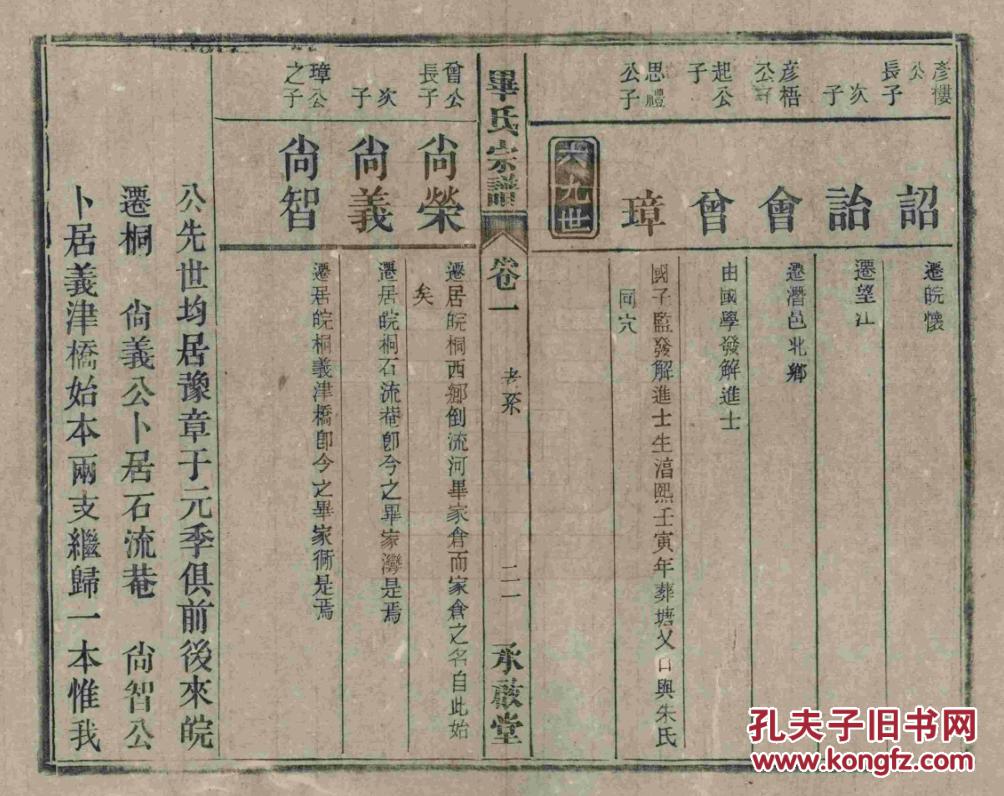 彥樓公長子
詔
遷皖懷
次子
詒
遷望江
彦梧公子
會
遷潛邑北鄉
起公子
曾
由國學發解進士
思禮公子
璋
國子監發解進士生淳熙壬寅年葬塘父口與朱氏
同穴
六九世
畢氏宗譜
卷一
老系
二一
承啟堂
曾公長子
尙榮
遷居皖桐西鄉倒流河畢家倉而家倉之名自此始
矣
次子
尙義
遷居皖桐石流菴卽今之畢家灣是焉
璋公之子
尙智
遷居皖桐義津橋卽今之畢家衖是焉
公先世均居豫章于元季俱前後來皖
遷桐 尙義公卜居石流菴 尙智公
卜居義津橋始本兩支繼歸一本惟我
孔夫子旧书网
www.kongfz.com